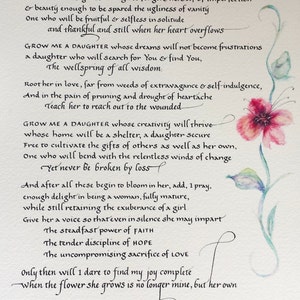 & beauty enough to be spared the ugliness of vanity
One who will be fruitful & selfless in solitude
and thankful and still when her heart overflows
GROW ME A DAUGHTER whose dreams will not become frustrations
a daughter who will search for You & find You,
The wellspring of all wisdom
Root her in love, far from weeds of extravagance & self-indulgence,
And in the pain of pruning and drought of heartache
Teach her to reach out to the wounded
GROW ME A DAUGHTER whose creativity will thrive
whose home will be a shelter, a daughter secure
Free to cultivate the gifts of others as well as her own,
One who will bend with the relentless winds of change
Yet never be broken by loss
And after all these begin to bloom in her, add, I pray,
enough delight in being a woman, fully mature,
while still retaining the exuberance of a girl
Give her a voice so that even in silence she may impart
The steadfast power of FAITH
The tender discipline of HOPE
The uncompromising sacrifice of LOVE
Only then will I dare to find my joy complete
When the flower she grows is no longer mine, but her own